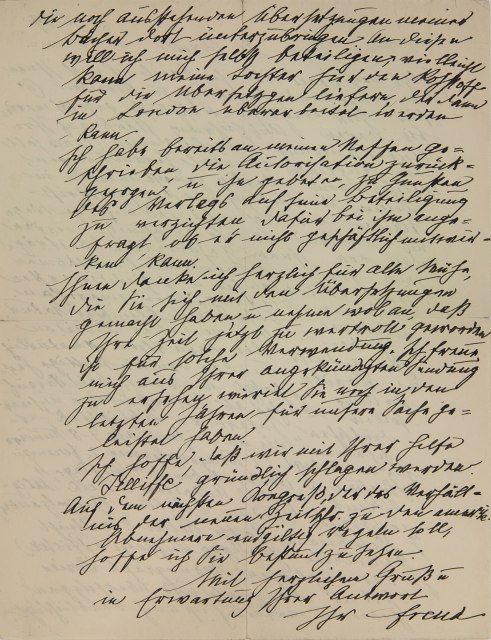 die noch ausstehenden Übersetzungen meiner
Bücher dort unterzubringen. An diesen
will ich mich selbst beteiligen, vielleicht
kann meine Tochter für den Rohstoff
für die Übersetzgen liefern, der dann
in London überarbeitet werden
kann.
Ich habe bereits an meinen Neffen ge-
schrieben, die Autorisation zurück-
gezogen, u ihn gebeten, zu Gunsten
des Verlags auf seine Beteiligung
zu verzichten, dafür bei ihm ange-
fragt ob er nicht geschäftlich mitwir-
ken kann.
Ihnen danke ich herzlich für alle Mühe,
die Sie sich mit den Übersetzungen
gemacht haben u nehme wol an, daß
Ihre Zeit jetzt zu wertvoll geworden
ist für solche Verwendung. Ich freue
mich aus Ihrer angekündigten Sendung
zu ersehen, wieviel Sie noch in den
letzten Jahren für unsere Sache ge-
leistet haben.
Ich hoffe, daß wir mit Ihrer Hilfe
Jelliffe gründlich schlagen werden.
Auf dem nächsten Kongreß, der das Verhält-
nis der neuen Zeitschr. zu den amerik.
Abnehmern endgiltig regeln soll,
hoffe ich Sie bestimmt zu sehen.
Mit herzlichem Gruß u
in Erwartung Ihrer Antwort
Ihr Freud